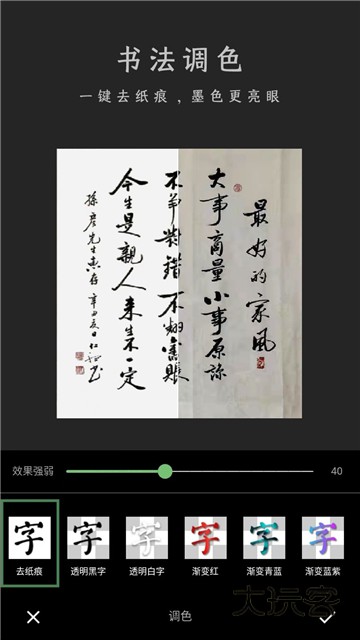 书法调色
一键去纸痕，墨色更亮眼
最好的家风
大事商量小事原谅
不争对错不翻旧账
今生是亲人来生不一定
效果强弱
40
去纸痕
透明黑字
透明白字
渐变红
渐变青蓝
渐变蓝紫
字
字
字
字
字
字
调色
大玩客